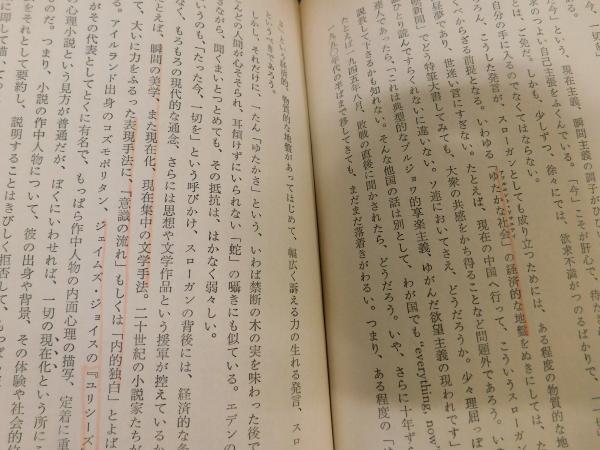 「今」という、現在主義、瞬間主義の調子がひび
求のつよい自己主張をふくんでいる。「今」こそが肝心で、待た
は、ご免だ。しかも、少しずつ、徐々にでは、欲求不満がつのるばかりで、一
自分の手に入るのでなくてはならない。
ろん、こうした発言が、スローガンとしても成り立つためには、ある程度の物質的な地
くざる前提となる。いわゆる「ゆたかな社会」の経済的な地盤をぬきにしては、た
昼夢であり、世迷い言にすぎない。たとえば、現在の中国へ行って、こういうスローガ
明新聞」でどう特筆大書してみても、大衆の共感をかち得ることなど問題外であろう。い
ひとり読んですらくれないに違いない。ソ連においてさえ、どうだろうか。少々理屈っぽ
連人であったら、「これは典型的なブルジョワ的享楽主義、ゆがんだ欲望主義の現われです」
説教して下さるかも知れない。そんな他国の話は別として、わが国でも"everything, now"
たとえば一九四五年八月、敗戦の直後に聞かされたら、どうだろう。いや、さらに十年ず
一九五〇年代の半ばまで押してきても、まだまだ落着きがわるい。つまり、ある程度の「
さ」という経済的、物質的な地盤があってはじめて、幅広く訴える力の生れる発言、スロ
というべきであろう。
しかし、それだけに、一たん「ゆたかさ」という、いわば禁断の木の実を味わった後で
んどの人間が心そそられ、耳傾けずにいられない「蛇」の囁きにも似ている。エデンの
から、聞くまいとつとめても、その抵抗は、はかなく弱々しい。
いうのも、「たった今、一切を」という呼びかけ、スローガンの背後には、経済的な条
なく、もろもろの現代的な通念、さらには思想や文学作品という援軍が控えているか
とえば、瞬間の美学、また現在化、現在集中の文学手法。二十世紀の小説家たちが
て、大いに力をふるった表現手法に、「意識の流れ」もしくは「内的独白」とよば
る。アイルランド出身のコズモポリタン、ジェイムズ・ジョイスの『ユリシーズ
がその代表としてとくに有名で、もっぱら作中人物の内面心理の描写、定着に重
心理小説という見方が普通だが、ぼくにいわせれば、一切の現在化という所に
ものだ。つまり、小説の作中人物について、彼の出身や背景、その体験や社会的
をそれとして要約し、説明することはきびしく拒否して、もっぱら
に即して描